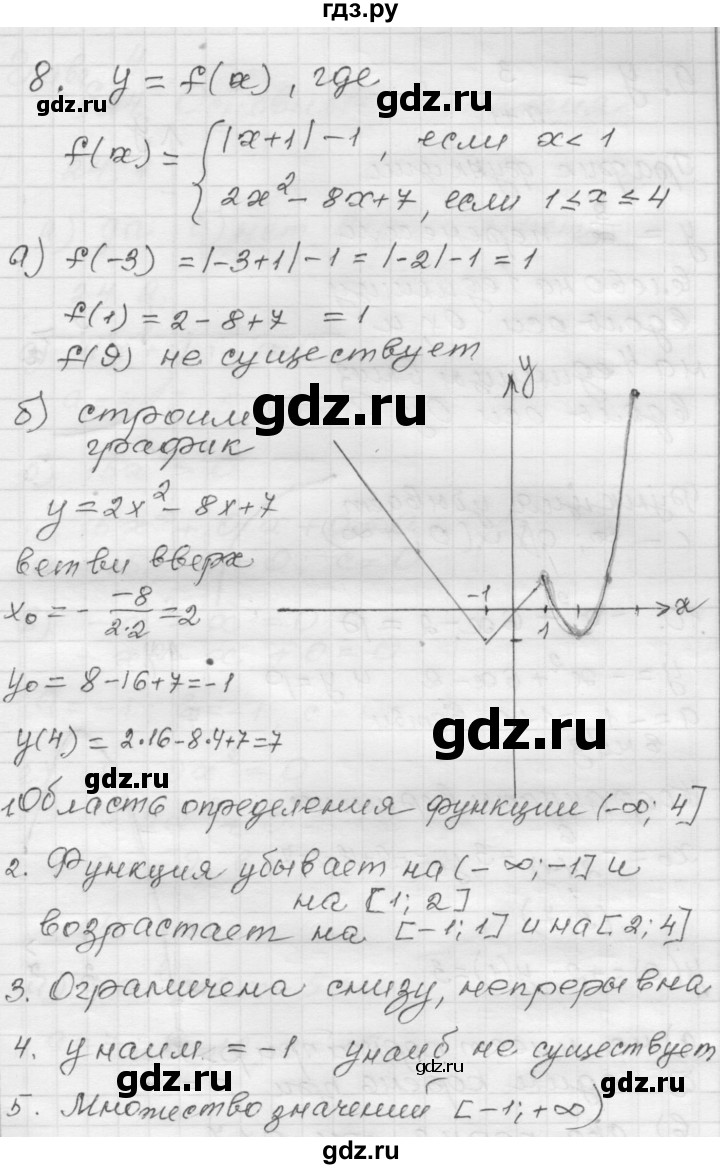 гдз.ру
8. y = f(x), где
f(x) = { |x+1| - 1, если x < 1
2x² - 8x + 7, если 1 ≤ x ≤ 4
а) f(-3) = |-3+1| - 1 = |-2| - 1 = 1
f(1) = 2 - 8 + 7 = 1
f(9) не существует
gdz.ru
б) строим
график
y
y = 2x² - 8x + 7
ветви вверх
x₀ = - -8/2·2 = 2
-1 1 x
y₀ = 8 - 16 + 7 = -1
y(4) = 2·16 - 8·4 + 7 = 7
gdz.ru
gdz.ru
1. Область определения функции (-∞; 4]
2. Функция убывает на (-∞; -1] и
на [1; 2]
возрастает на [-1; 1] и на [2; 4]
3. Ограничена снизу, непрерывна
4. y наим = -1 y наиб не существует
gdz.ru
gdz.ru
5. Множество значений [-1; +∞)
gdz.ru